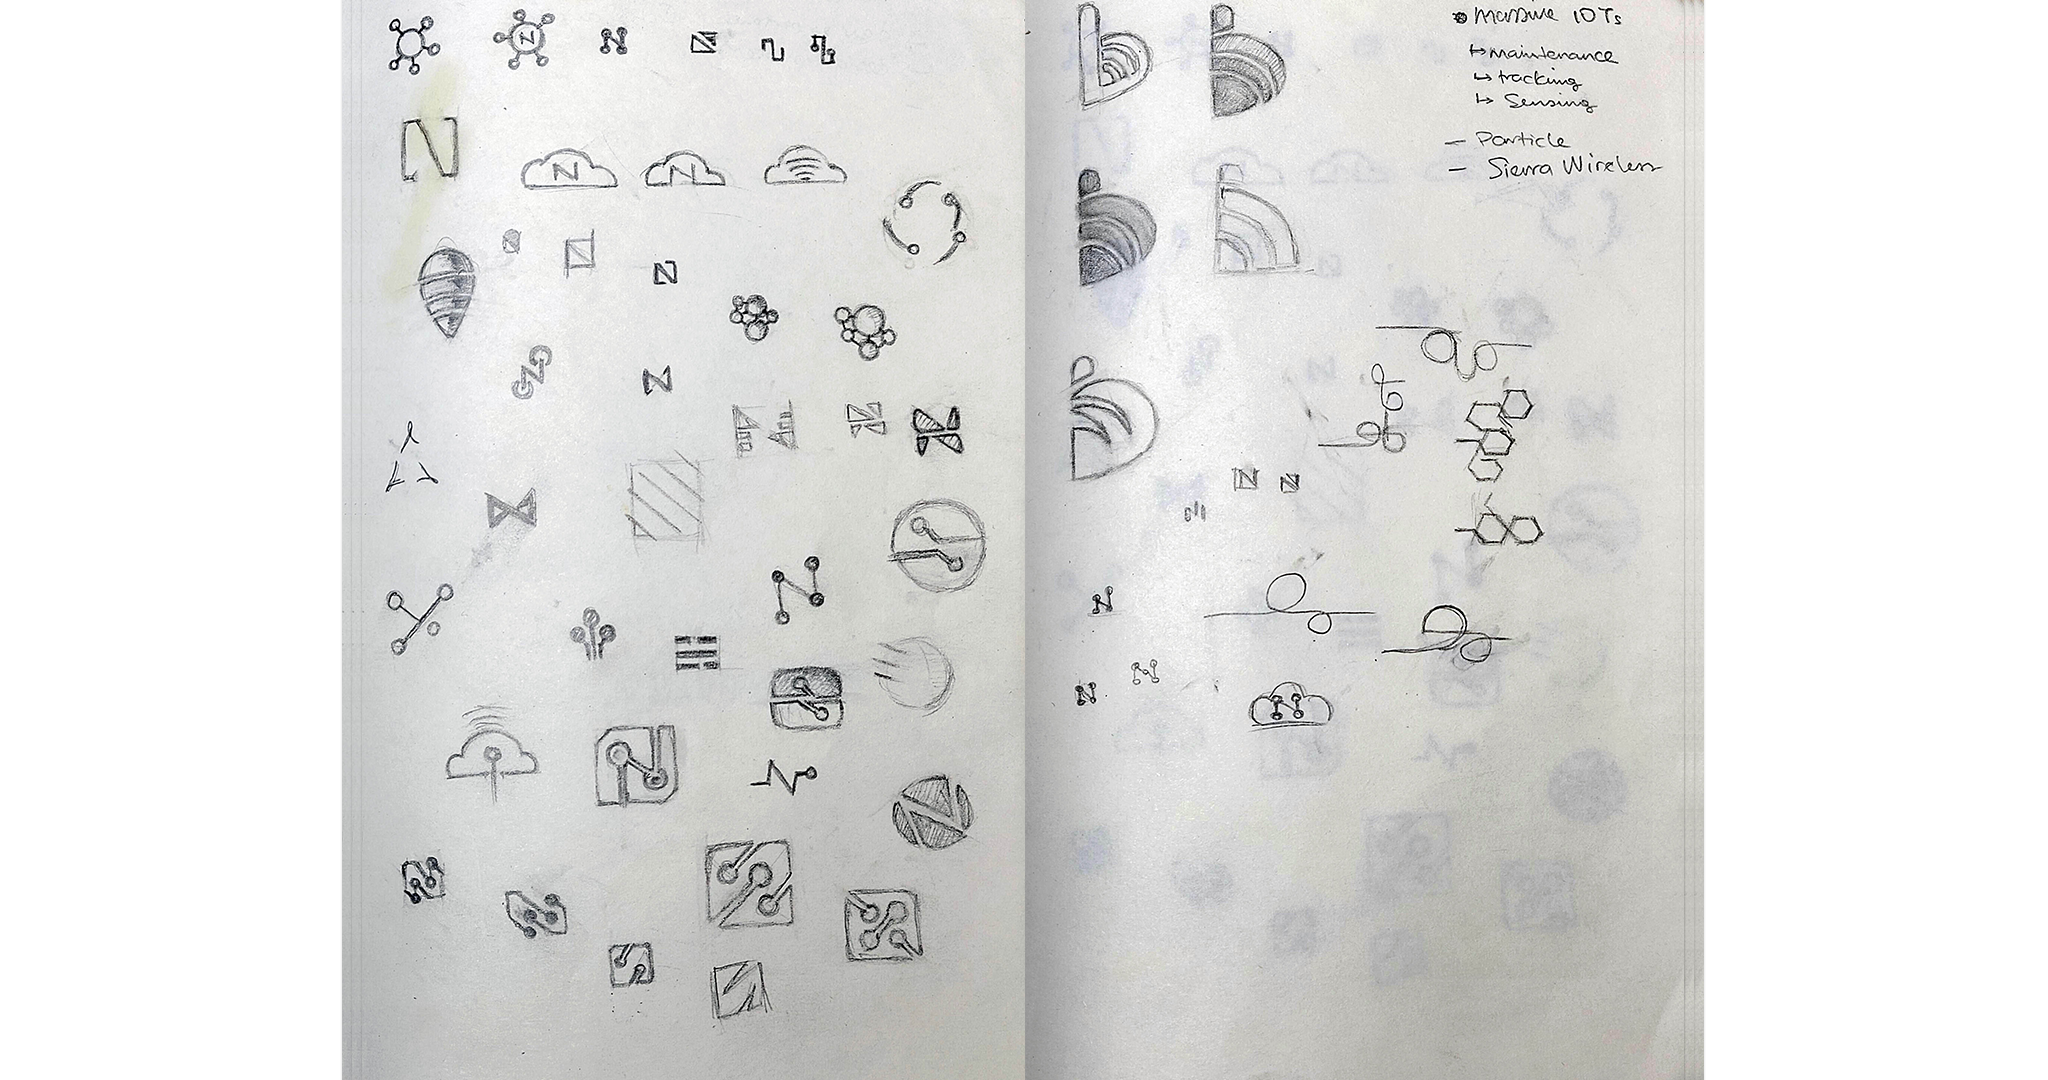 N
N
N
Massive IOTs
↳ maintenance
↳ tracking
↳ Sensing
— Particle
— Sierra Wireless